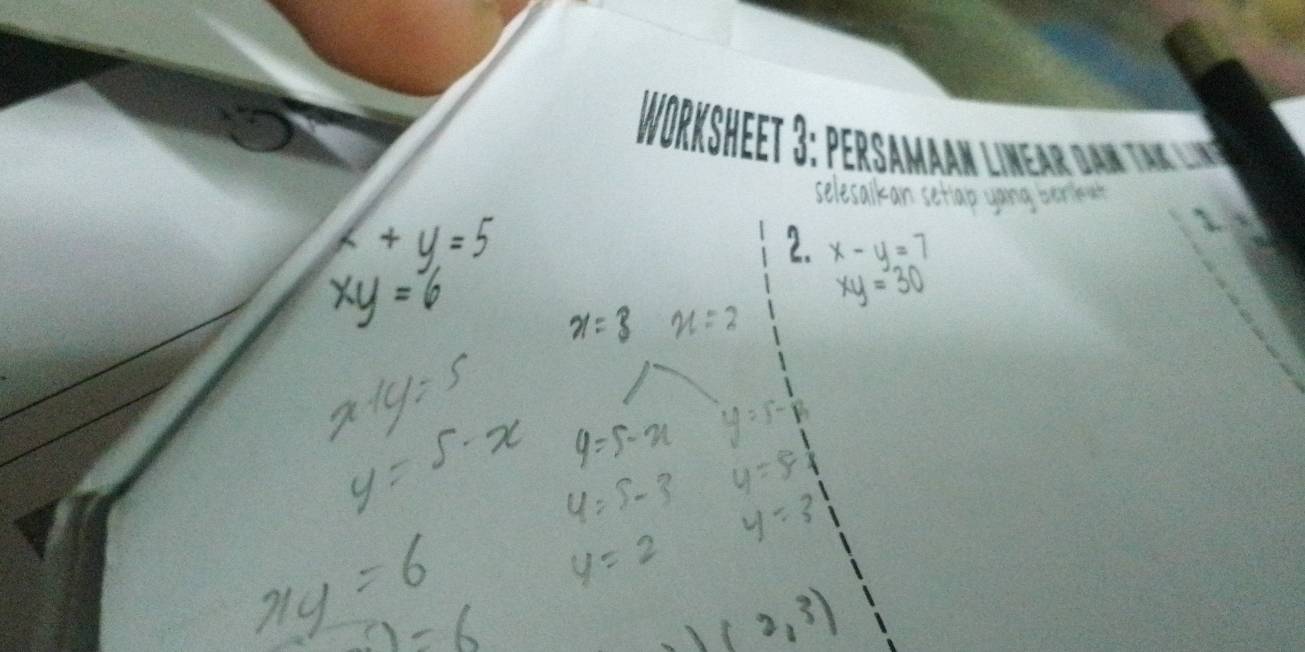 WORKSHEET 3: PERSAMAAN LINEAR DAN TAK
selesaikan setiap yang berikut
+ y = 5
xy = 6
x + y = 5
y = 5 - x
xy = 6
= 6
x = 3 x = 2
y = 5 - x
y = 5 - 3
y = 2
y = 5 -
y = 5
y = 3
(2, 3)
2. x - y = 7
xy = 30